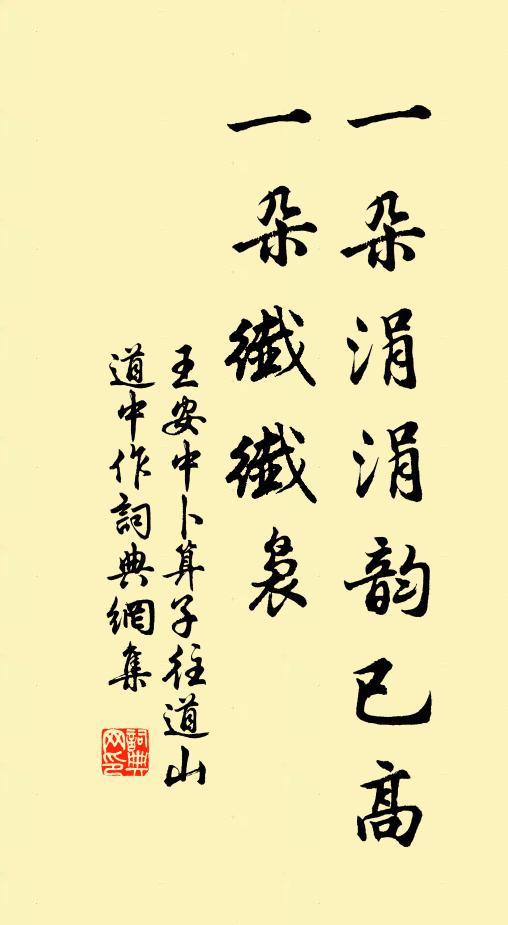 一朵涓涓韵已高
一朵纖纖裊
王安中卜算子往道山
道中作詞典網集
詞典网印